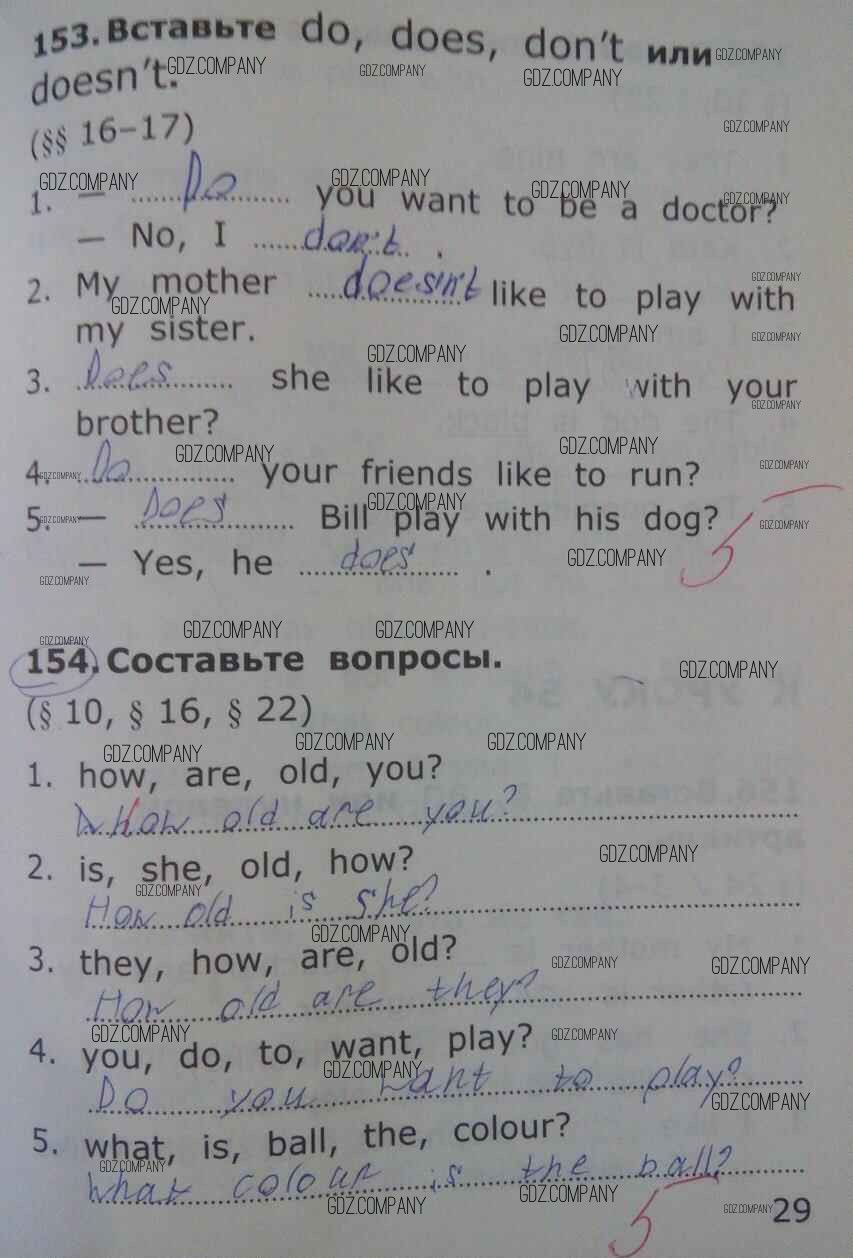 153. Вставьте do, does, don't или
doesn't.
(§§ 16–17)
1. — Do you want to be a doctor?
— No, I don't.
2. My mother doesn't like to play with
my sister.
3. Does she like to play with your
brother?
4. Do your friends like to run?
5. — Does Bill play with his dog?
— Yes, he does.
5
154. Составьте вопросы.
(§ 10, § 16, § 22)
1. how, are, old, you?
How old are you?
2. is, she, old, how?
How old is she?
3. they, how, are, old?
How old are they?
4. you, do, to, want, play?
Do you want to play?
5. what, is, ball, the, colour?
What colour is the ball?
5
29
GDZ.COMPANY